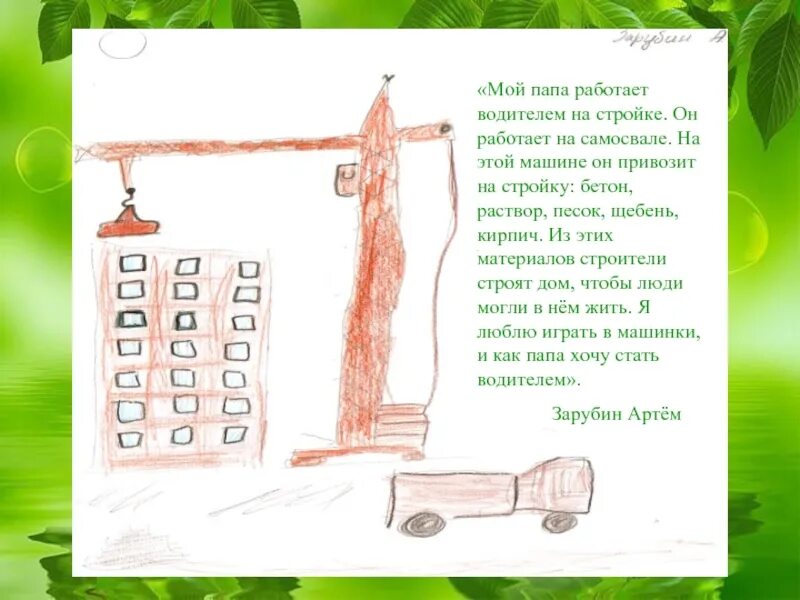 Зарубин А
«Мой папа работает
водителем на стройке. Он
работает на самосвале. На
этой машине он привозит
на стройку: бетон,
раствор, песок, щебень,
кирпич. Из этих
материалов строители
строят дом, чтобы люди
могли в нём жить. Я
люблю играть в машинки,
и как папа хочу стать
водителем».
Зарубин Артём